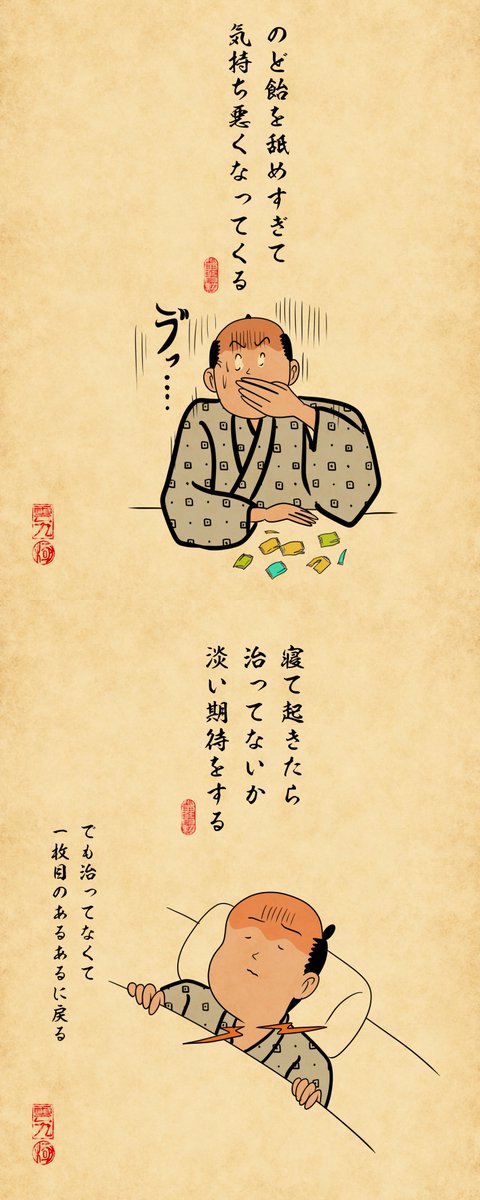 のど飴を舐めすぎて
気持ち悪くなってくる
ヴッ……
寝て起きたら
治ってないか
淡い期待をする
でも治ってなくて
一枚目のあるあるに戻る